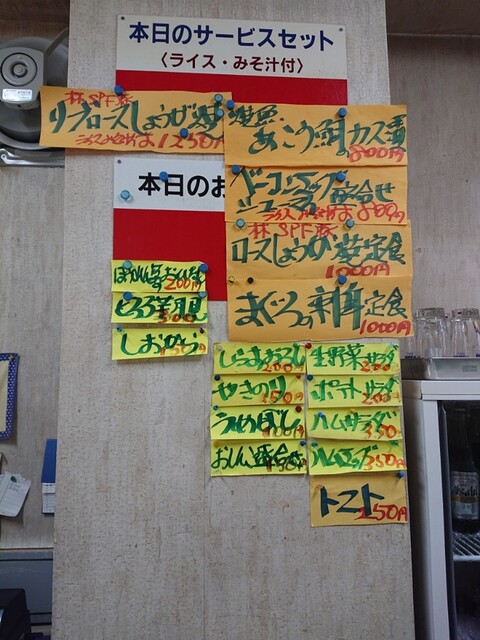 本日のサービスセット
〈ライス・みそ汁付〉
林SPF豚
リブロースしょうが焼
ライスみそ汁付 1250円
焼魚
あこう鯛カス漬
800円
ベーコンエッグ
盛合せ
ライス
800円
本日のお
林SPF豚
ロースしょうが焼定食
1000円
まぐろの刺身定食
1000円
ほうれん草おひたし
200円
とろろ芋月見
300円
しおから
150円
しらすおろし
200円
生野菜サラダ
200
やきのり
150円
ポテトサラダ
200
うめぼし
100円
ハムサラダ
350
おしんこ盛合せ
ハムエッグ
350円
トマト
250円